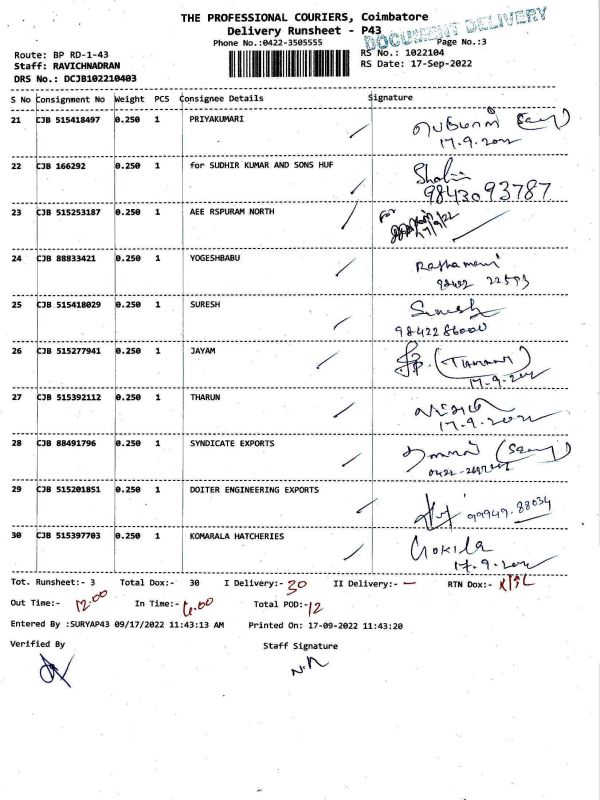 THE PROFESSIONAL COURIERS, Coimbatore
Delivery Runsheet - P43
DOCUMENT DELIVERY
Phone No.:0422-3505555
Page No.:3
Route: BP RD-1-43
RS No.: 1022104
Staff: RAVICHNADRAN
RS Date: 17-Sep-2022
DRS No.: DCJB102210403
S No Consignment No Weight PCS Consignee Details Signature
21 CJB 515418497 0.250 1 PRIYAKUMARI
17.9.2022
22 CJB 166292 0.250 1 for SUDHIR KUMAR AND SONS HUF
9843093787
23 CJB 515253187 0.250 1 AEE RSPURAM NORTH
For
24 CJB 88833421 0.250 1 YOGESHBABU
25 CJB 515418029 0.250 1 SURESH Suresh
9842286000
26 CJB 515277941 0.250 1 JAYAM
17.9.2022
27 CJB 515392112 0.250 1 THARUN
17.9.2022
28 CJB 88491796 0.250 1 SYNDICATE EXPORTS
29 CJB 515201851 0.250 1 DOITER ENGINEERING EXPORTS
99949-88034
30 CJB 515397703 0.250 1 KOMARALA HATCHERIES Gokila
17.9.2022
Tot. Runsheet:- 3 Total Dox:- 30 I Delivery:- 30 II Delivery:- — RTN Dox:-
Out Time:- 12.00 In Time:- 6.00 Total POD:- 12
Entered By :SURYAP43 09/17/2022 11:43:13 AM Printed On: 17-09-2022 11:43:20
Verified By Staff Signature